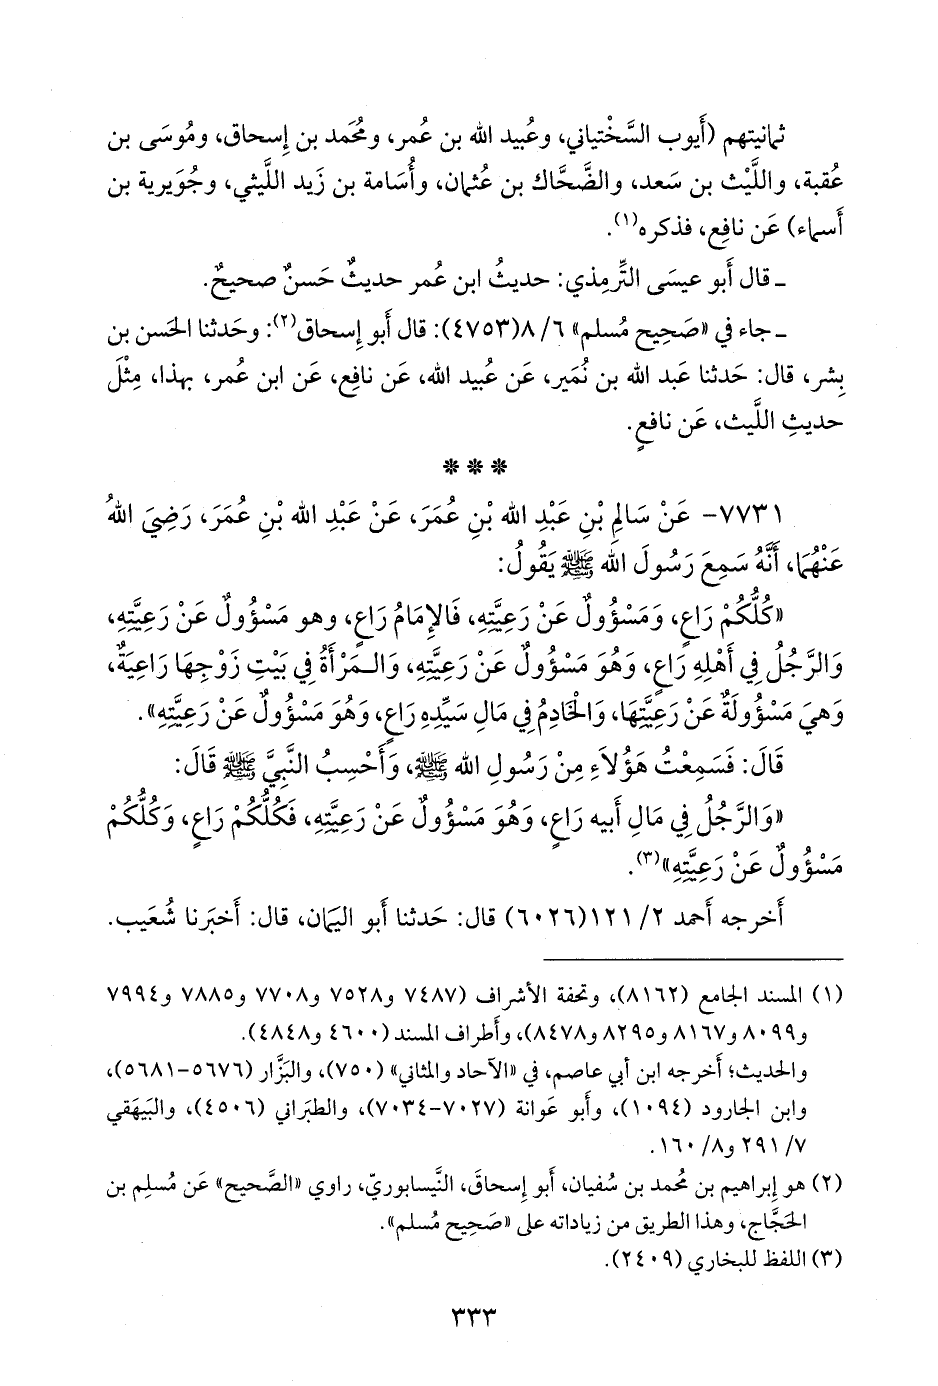 ثمانيتهم (أَيوب السَّخْتياني، وعُبيد الله بن عُمر، ومُحَمد بن إِسحاق، ومُوسَى بن
عُقبة، واللَّيْث بن سَعد، والضَّحَّاك بن عُثمان، وأُسَامة بن زَيد اللَّيثي، وجُوَيرية بن
أَسماء) عَن نافِع، فذكره(١).
ـ قال أَبو عيسَى التِّرمِذي: حديثُ ابن عُمر حديثٌ حَسنٌ صحيحٌ.
ـ جاء في «صَحِيح مُسلم» ٦/ ٨(٤٧٥٣): قال أَبو إِسحاق(٢): وحَدثنا الحَسن بن
بِشر، قال: حَدثنا عَبد الله بن نُمَير، عَن عُبيد الله، عَن نافِع، عَن ابن عُمر، بهذا، مِثْلَ
حديثِ اللَّيث، عَن نافعٍ.
* * *
٧٧٣١- عَنْ سَالِمِ بْنِ عَبْدِ الله بْنِ عُمَرَ، عَنْ عَبْدِ الله بْنِ عُمَرَ، رَضِيَ اللهُ
عَنْهُمَا، أَنَّهُ سَمِعَ رَسُولَ الله ﷺ يَقُولُ:
«كُلُّكُمْ رَاعٍ، وَمَسْؤُولٌ عَنْ رَعِيَّتِهِ، فَالإِمَامُ رَاعٍ، وهو مَسْؤُولٌ عَنْ رَعِيَّتِهِ،
وَالرَّجُلُ فِي أَهْلِهِ رَاعٍ، وَهُوَ مَسْؤُولٌ عَنْ رَعِيَّتِهِ، وَالـمَرْأَةُ فِي بَيْتِ زَوْجِهَا رَاعِيَةٌ،
وَهيَ مَسْؤُولَةٌ عَنْ رَعِيَّتِهَا، وَالْخَادِمُ فِي مَالِ سَيِّدِهِ رَاعٍ، وَهُوَ مَسْؤُولٌ عَنْ رَعِيَّتِهِ».
قَالَ: فَسَمِعْتُ هَؤُلَاءِ مِنْ رَسُولِ الله ﷺ، وَأَحْسِبُ النَّبِيَّ ﷺ قَالَ:
«وَالرَّجُلُ فِي مَالِ أَبيه رَاعٍ، وَهُوَ مَسْؤُولٌ عَنْ رَعِيَّتِهِ، فَكُلُّكُمْ رَاعٍ، وَكُلُّكُمْ
مَسْؤُولٌ عَنْ رَعِيَّتِهِ»(٣).
أَخرجه أَحمد ٢/ ١٢١(٦٠٢٦) قال: حَدثنا أَبو اليَمان، قال: أَخبَرنا شُعَيب.
(١) المسند الجامع (٨١٦٢)، وتحفة الأشراف (٧٤٨٧ و٧٥٢٨ و٧٧٠٨ و٧٨٨٥ و٧٩٩٤
و٨٠٩٩ و٨١٦٧ و٨٢٩٥ و٨٤٧٨)، وأَطراف المسند (٤٦٠٠ و٤٨٤٨).
والحديث؛ أَخرجه ابن أبي عاصم، في «الآحاد والمثاني» (٧٥٠)، والبَزَّار (٥٦٧٦-٥٦٨١)،
وابن الجارود (١٠٩٤)، وأَبو عَوانة (٧٠٢٧-٧٠٣٤)، والطبَراني (٤٥٠٦)، والبَيهَقي
٧/ ٢٩١ و٨/ ١٦٠.
(٢) هو إِبراهيم بن مُحمد بن سُفيان، أَبو إِسحاقَ، النَّيسابوريّ، راوي «الصَّحيح» عَن مُسلِم بن
الحَجَّاج، وهذا الطريق من زياداته على «صَحِيح مُسلم».
(٣) اللفظ للبخاري (٢٤٠٩).
٣٣٣